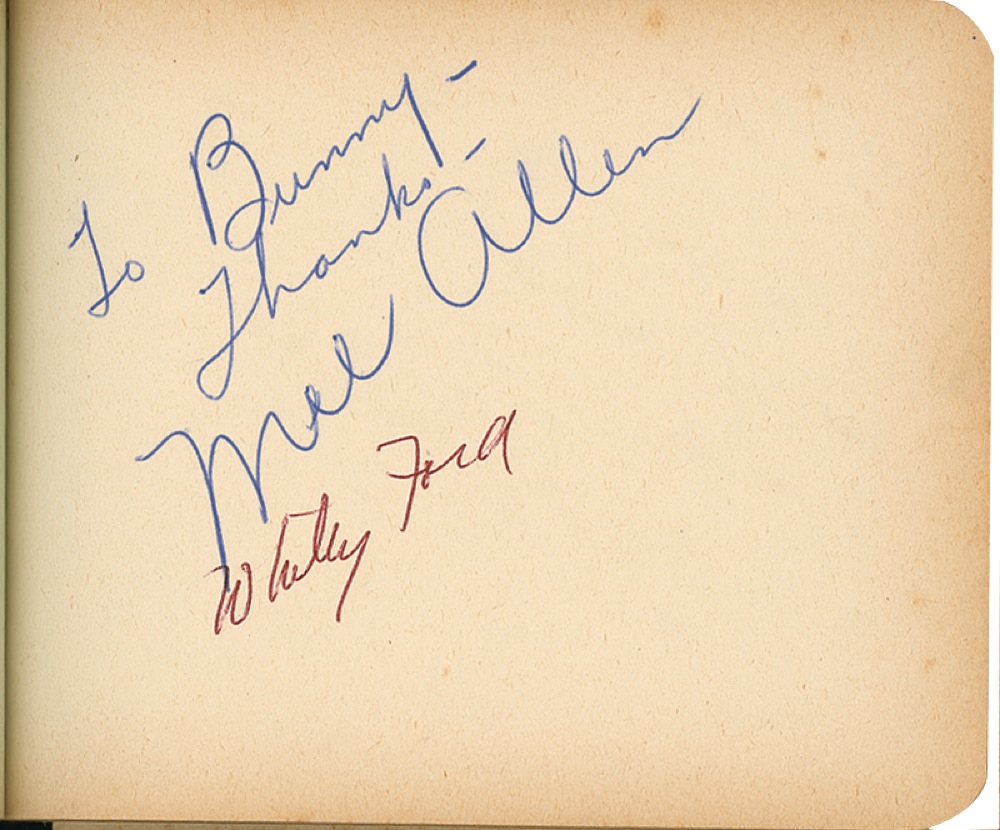 To Bunny -
Thanks -
Mel Allen
Whitey Ford